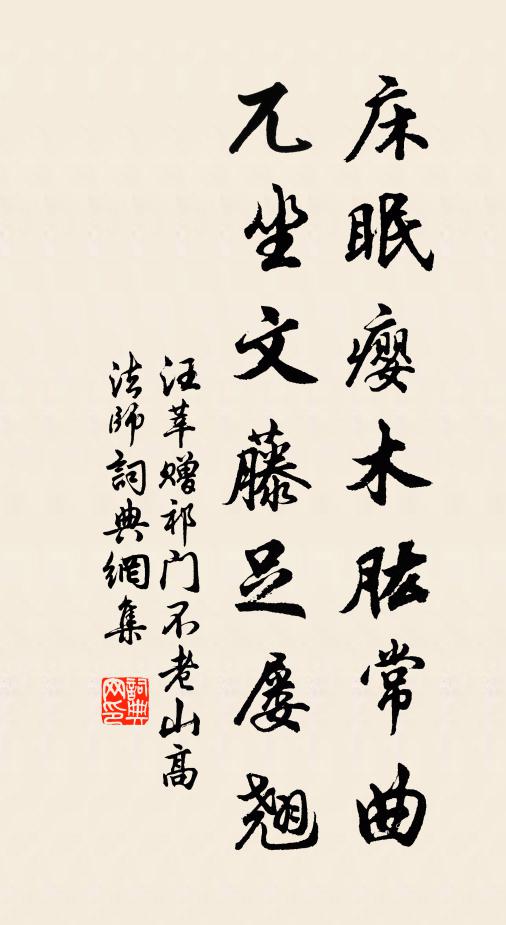 床眠癭木肱常曲
兀坐文藤足屡翘
汪莘赠祁门不老山高
法師詞典網集
詞典网印